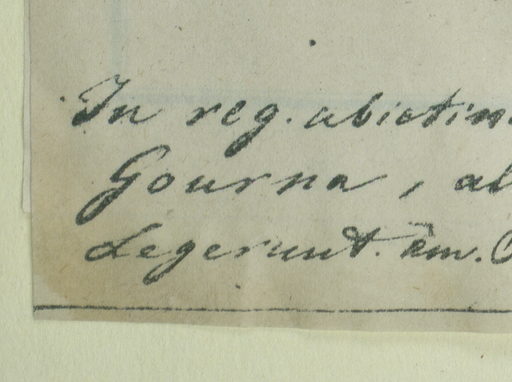 In reg. abietin
Gourna, al
Legerunt. em.